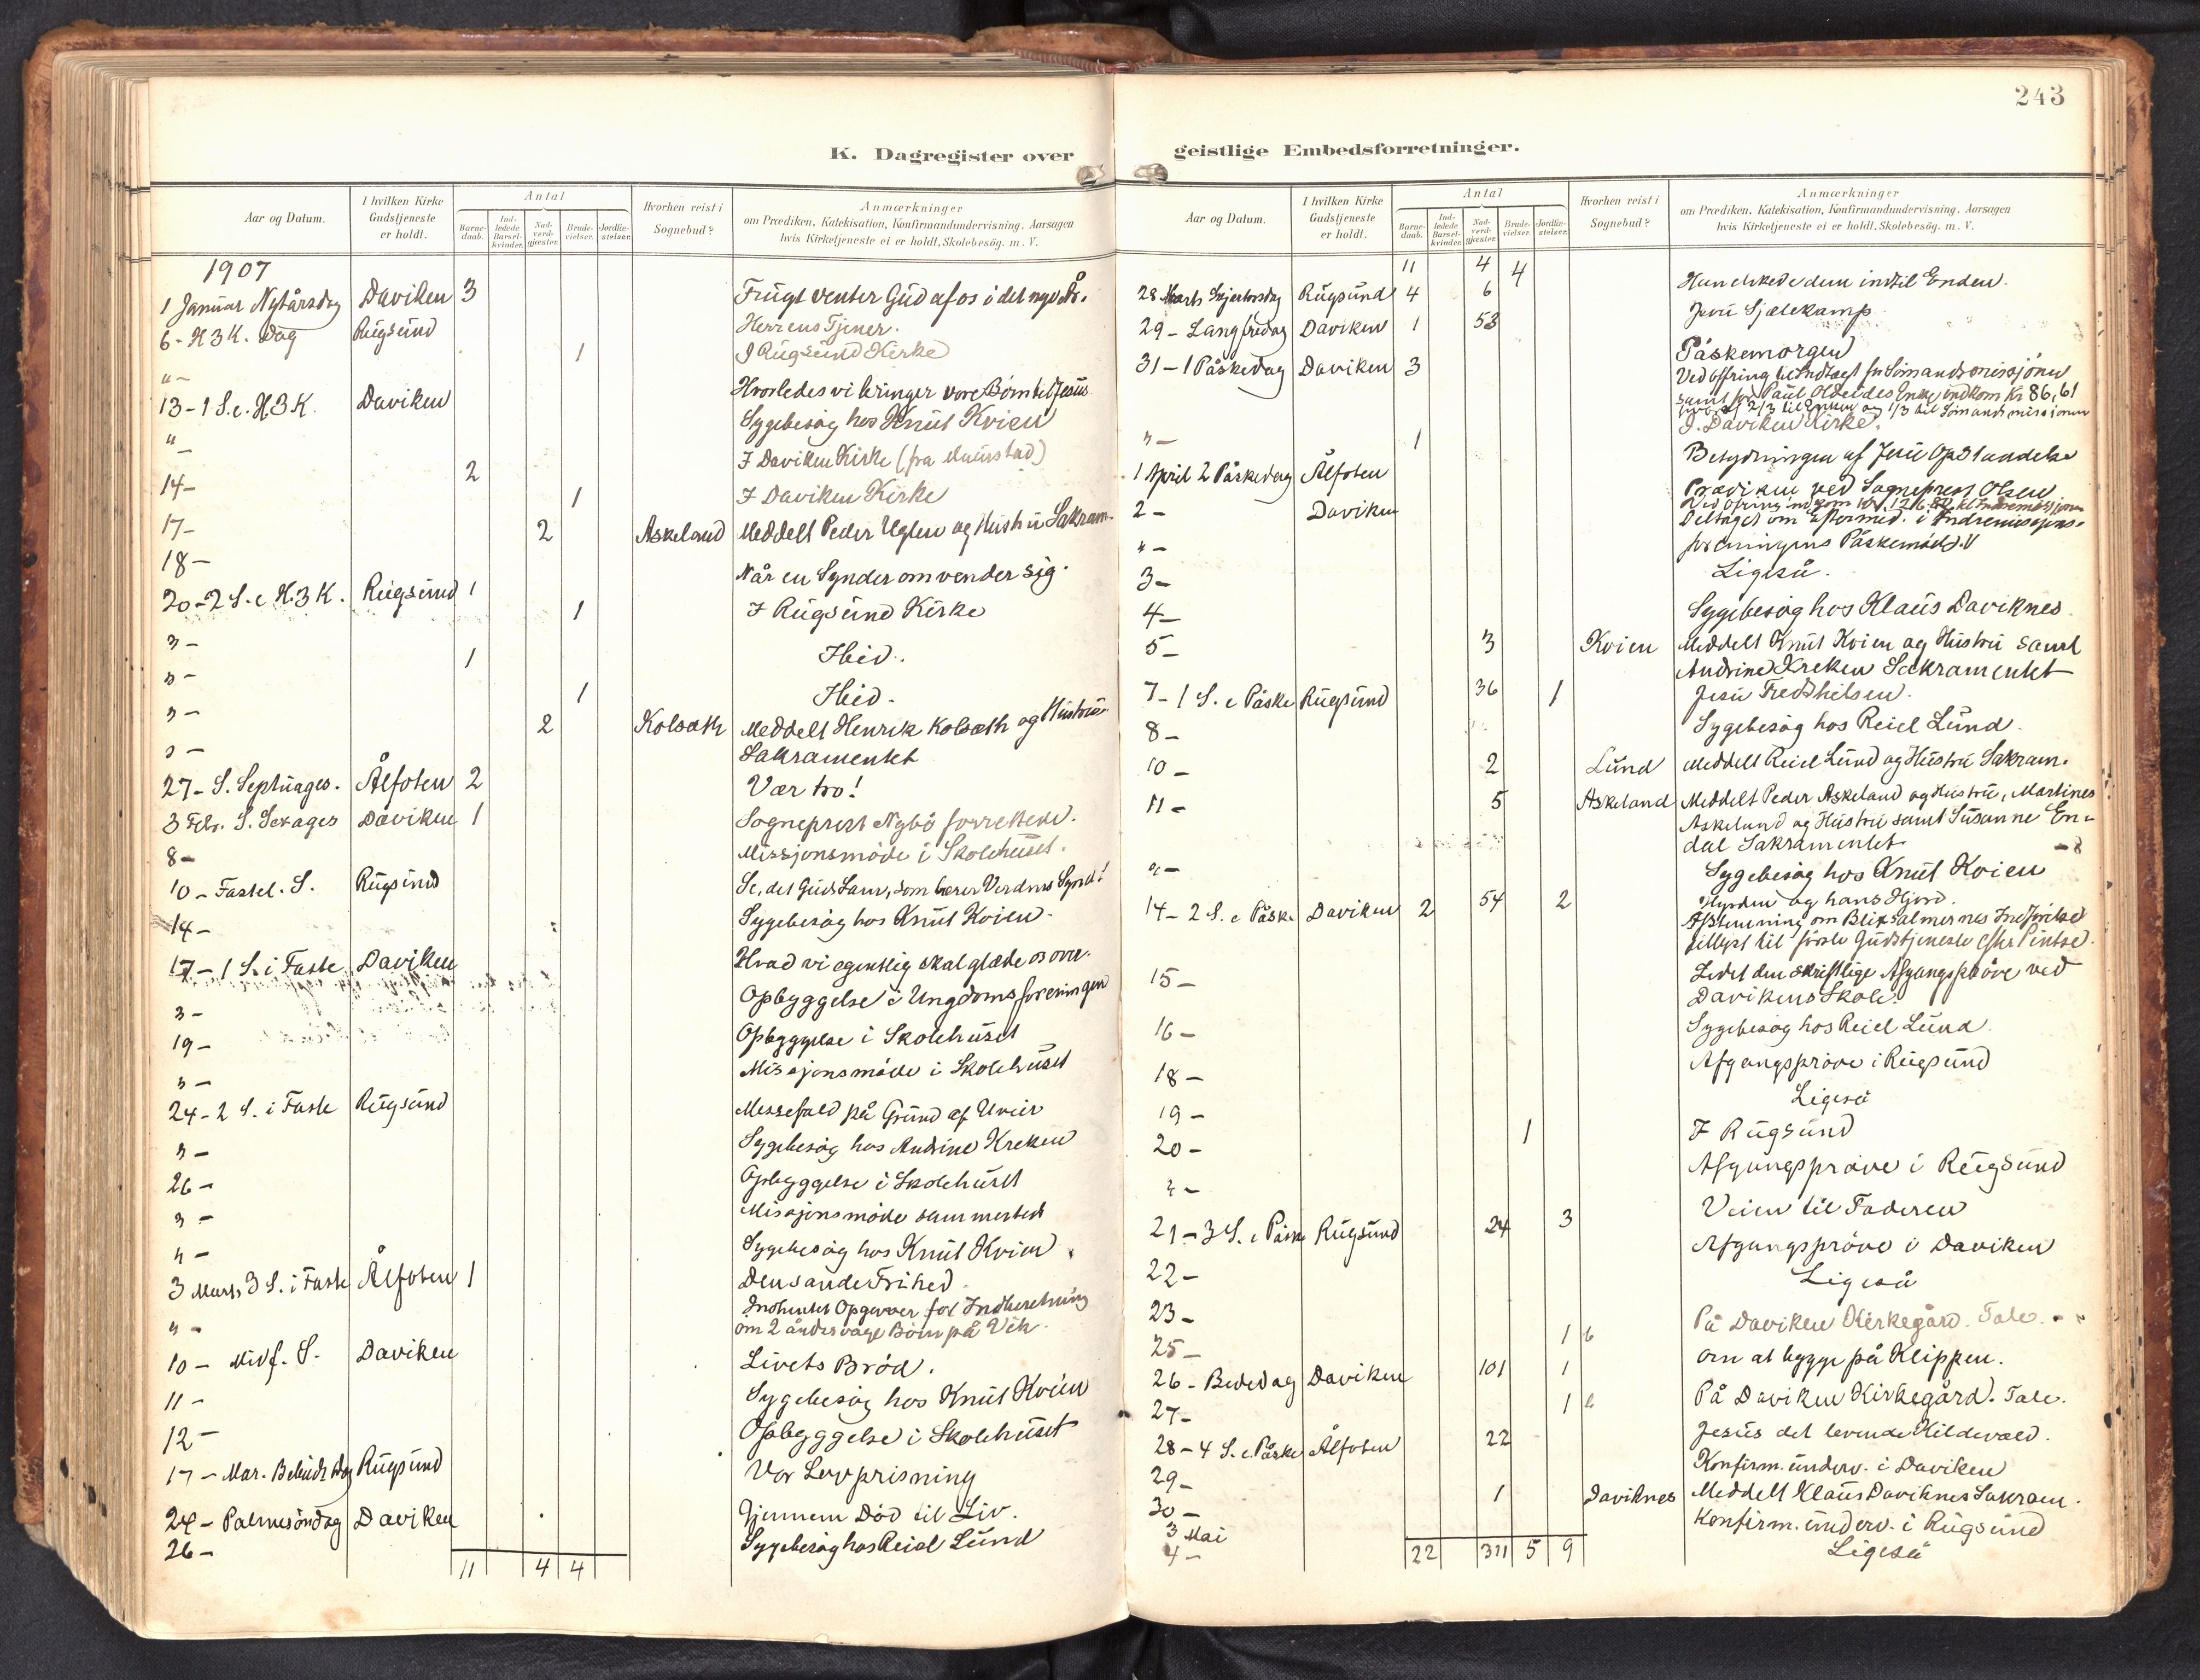 243
K. Dagregister over
geistlige Embedsforretninger.
Aar og Datum.
I hvilken Kirke Gudstjeneste er holdt.
Antal
Barne-daab.
Ind-ledede Barsel-kvinder.
Nad-verd-gjester.
Brude-vielser.
Jordfæ-stelser.
Hvorhen reist i Sognebud?
Anmærkninger
om Prædiken, Katekisation, Konfirmandundervisning, Aarsagen
hvis Kirketjeneste ei er holdt, Skolebesøg. m. V.
1907
1 Januar Nytårsdag Daviken 3 Frugt venter Gud af os i det nye År.
6 - H 3 K. Dag Rugsund Herrens Tjener.
" - 1 I Rugsund Kirke
13 - 1 S. e. H 3 K. Daviken Hvorledes vi bringer vore Børn til Jesus
" - Sygebesøg hos Knut Kvien
14 - 2 I Daviken Kirke (fra Maurstad)
17 - 1 I Daviken Kirke
18 - 2 Askeland Meddelt Peder Uglen og Hustru Sakram.
20 - 2 S. e H. 3 K. Rugsund 1 Når en Synder omvender sig.
" - 1 I Rugsund Kirke
" - 1 Ibid.
" - 1 Ibid.
" - 2 Kolsæth Meddelt Henrik Kolsæth og Hustru
Sakramentet
27 - S. Septuages. Ålfoten 2 Vær tro!
3 Febr. S. Sexages Daviken 1 Sogneprest Nybø forrettede.
8 - Missjonsmøde i Skolehuset.
10 - Fastel. S. Rugsund Se, det Guds Lam, som bærer Verdens Synd!
14 - Sygebesøg hos Knut Kvien.
17 - 1 S. i Faste Daviken Hvad vi egentlig skal glæde os over.
" - Opbyggelse i Ungdomsforeningen
19 - Opbyggelse i Skolehuset
" - Missjonsmøde i Skolehuset
24 - 2 S. i Faste Rugsund Messefald på Grund af Uveir
" - Sygebesøg hos Andrine Kreken
26 - Opbyggelse i Skolehuset
" - Missjonsmøde sammesteds
" - Sygebesøg hos Knut Kvien
3 Marts 3 S. i Faste Ålfoten 1 Den sande Frihed.
" - Indhentet Opgaver for Indberetning
om 2 åndssvage Børn på Vik.
10 - Midf. S. Daviken Livets Brød.
11 - Sygebesøg hos Knut Kvien
12 - Opbyggelse i Skolehuset
17 - Mar. Bebud. Dag Rugsund Vor Lovprisning
24 - Palmesøndag Daviken Gjennem Død til Liv.
26 - Sygebesøg hos Reiel Lund
11 4 4
Aar og Datum.
I hvilken Kirke Gudstjeneste er holdt.
Antal
Barne-daab.
Ind-ledede Barsel-kvinder.
Nad-verd-gjester.
Brude-vielser.
Jordfæ-stelser.
Hvorhen reist i Sognebud?
Anmærkninger
om Prædiken, Katekisation, Konfirmandundervisning, Aarsagen
hvis Kirketjeneste ei er holdt, Skolebesøg. m. V.
11 4 4
28 Marts Skjertorsdag Rugsund 4 6 Han elskede dem indtil Enden.
29 - Langfredag Daviken 1 53 Jesu Sjælekamp
31 - 1 Påskedag Daviken 3 Påskemorgen
Ved Offring til Indtægt for Sømandsmissjonen
samt for Paul Oldeides Enke indkom Kr 86,61
hvoraf 2/3 til Enken og 1/3 til Sømandsmissjonen
" - 1 I Daviken Kirke.
1 April 2 Påskedag Ålfoten Betydningen af Jesu Opstandelse
2 - Daviken Prædiken ved Sogneprest Olsen
Ved Ofring indkom Kr til Indremissjonen
" - Deltaget om Eftermid. i Indremissjons-
foreningens Påskemøde
3 - Ligeså.
4 - Sygebesøg hos Klaus Daviknes
5 - 3 Kvien Meddelt Knut Kvien og Hustru samt
Andrine Kreken Sakramentet
7 - 1 S. e Påske Rugsund 36 1 Jesu Fredshilsen.
8 - Sygebesøg hos Reiel Lund.
10 - 2 Lund Meddelt Reiel Lund og Hustru Sakram.
11 - 5 Askeland Meddelt Peder Askeland og Hustru, Martines
Askeland og Hustru samt Susanne En-
dal Sakramentet
" - Sygebesøg hos Knut Kvien
14 - 2 S. e Påske Daviken 2 54 2 Hyrden og hans Hjord.
Afstemning om Blixsalmernes Indførelse
tillyst til første Gudstjeneste efter Pintse.
15 - Ledet den skriftlige Afgangsprøve ved
Davikens Skole.
16 - Sygebesøg hos Reiel Lund.
18 - Afgangsprøve i Rugsund
19 - Ligeså
20 - 1 I Rugsund
" - Afgangsprøve i Rugsund
21 - 3 S. e Påske Rugsund 24 3 Veien til Faderen
22 - Afgangsprøve i Daviken
23 - Ligeså
25 - 1 På Daviken Kirkegård. Tale.
26 - Bededag Daviken 101 1 Om at bygge på Klippen.
27 - 1 På Daviken Kirkegård. Tale.
28 - 4 S. e. Påske Ålfoten 22 Jesus det levende Kildevæld.
29 - Konfirm. underv. i Daviken
30 - 1 Daviknes Meddelt Klaus Daviknes Sakram.
3 Mai Konfirm. underv. i Rugsund
4 - Ligeså
22 311 5 9